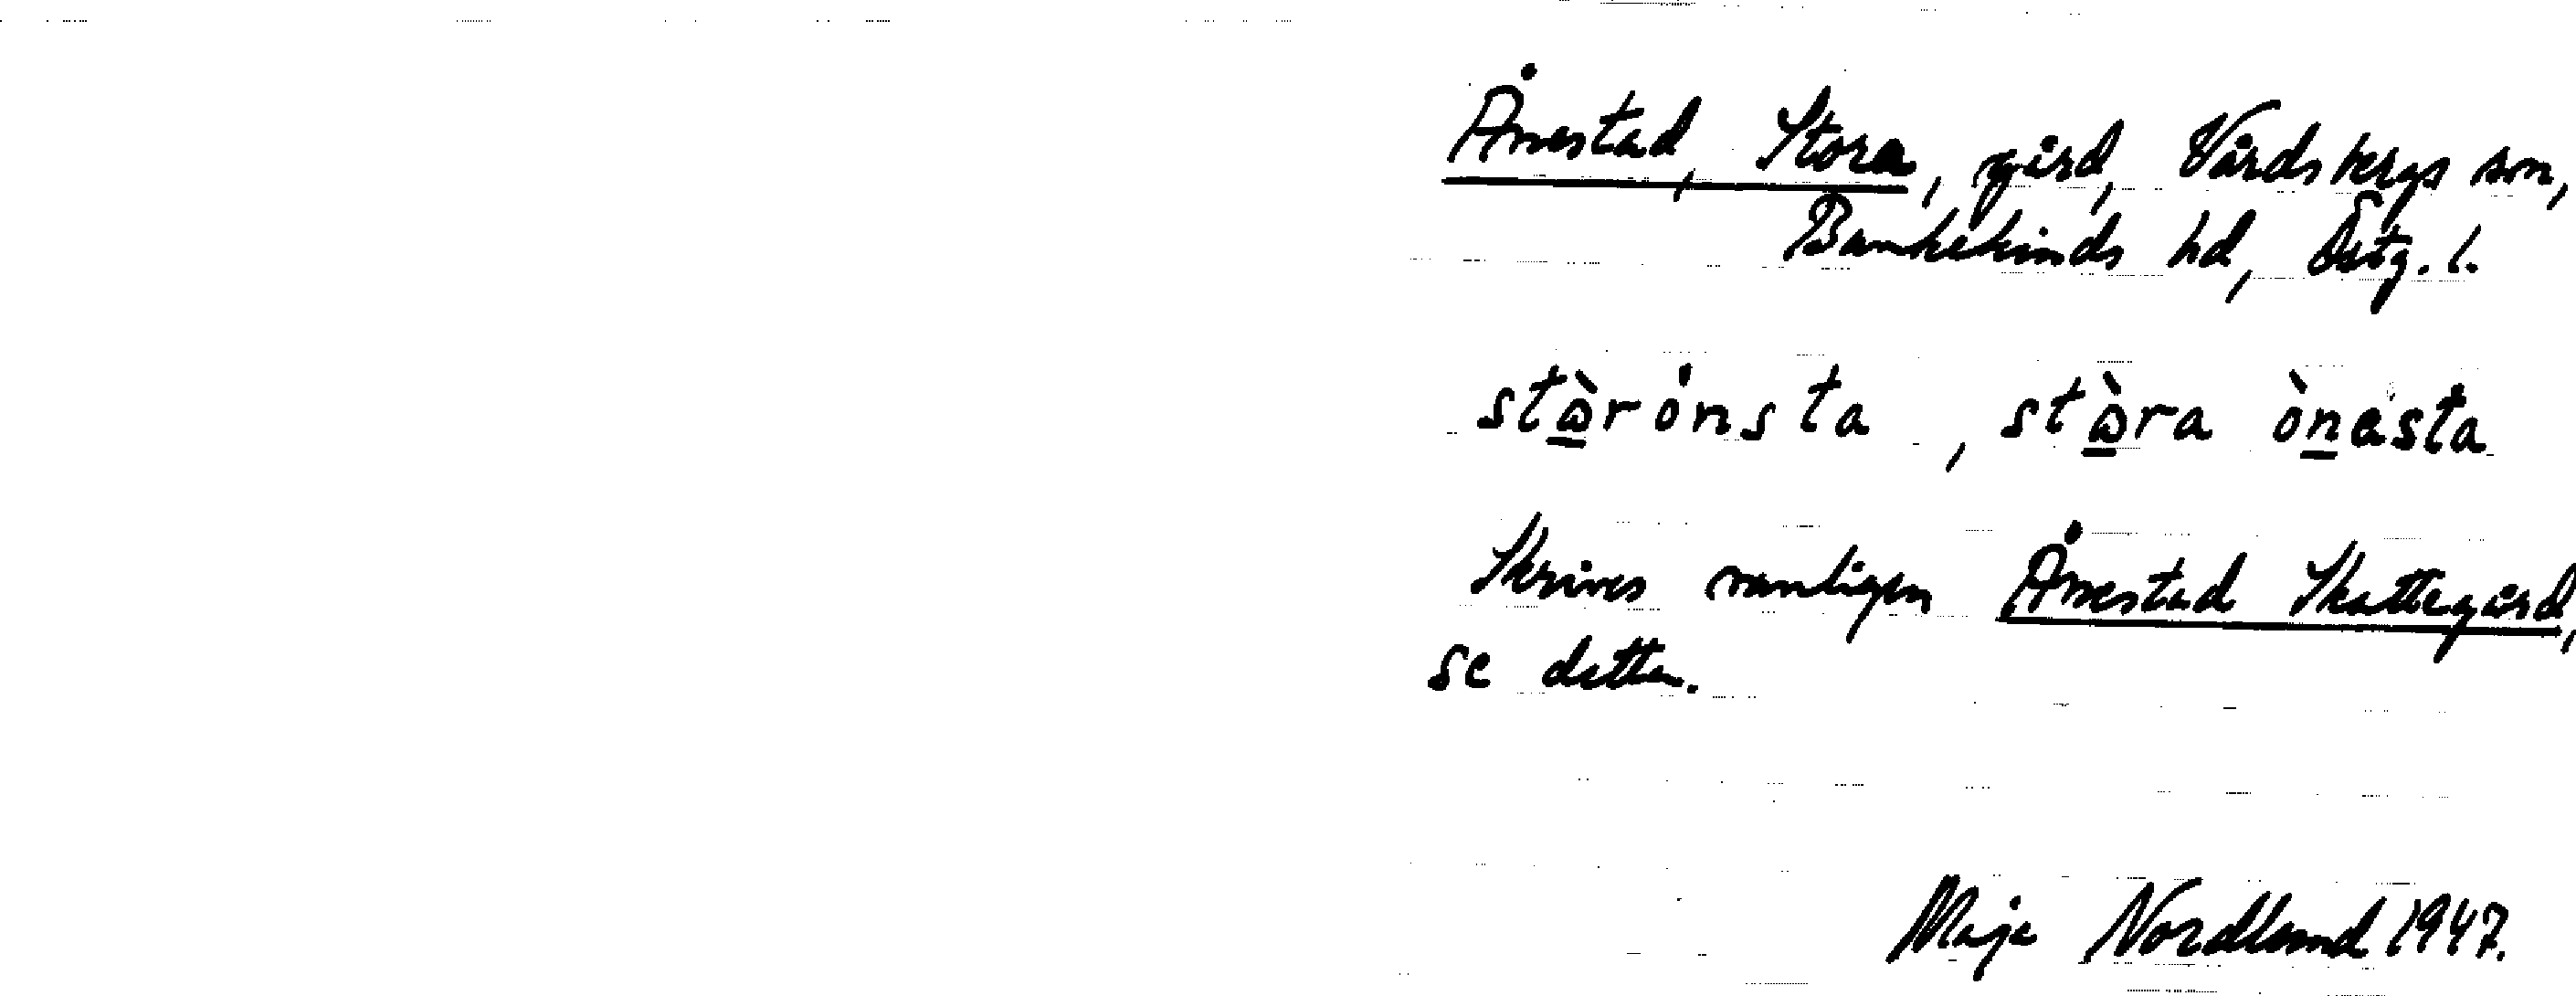 Ånestad, Stora, gård, Vårdsbergs sn,
Bankekinds hd, Östg. l.
stòrónsta, stòra ònesta
Skrives vanligen Ånestad Skattegård,
se detta.
Maja Nordlund 1947.